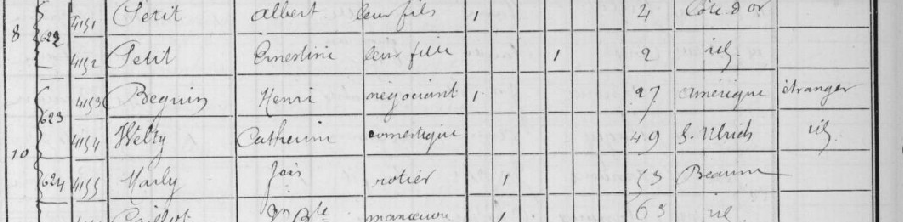 4151 Petit Albert leur fils 1 4 Côte d'or
8 622 4152 Petit Ernestine leur fille 1 2 id.
623 4153 Beguin Henri négociant 1 27 amérique étranger
10 4154 Wéltz Catherine domestique 49 S. Ulrich id.
624 4155 Marly rotier 1 73 Beaune
manoeuv 1 63 id.